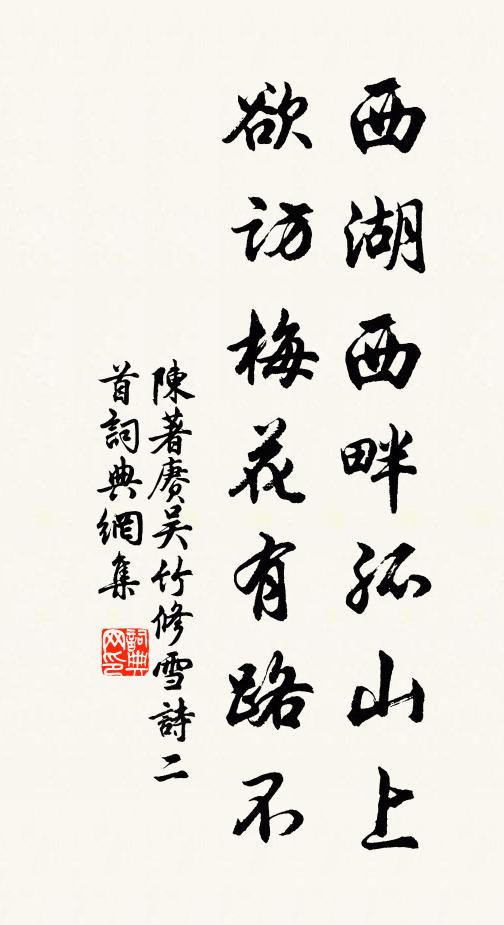 西湖西畔孤山上
欲訪梅花有路不
陳著賡吳竹修雪詩二
首詞典網集
詞典网印